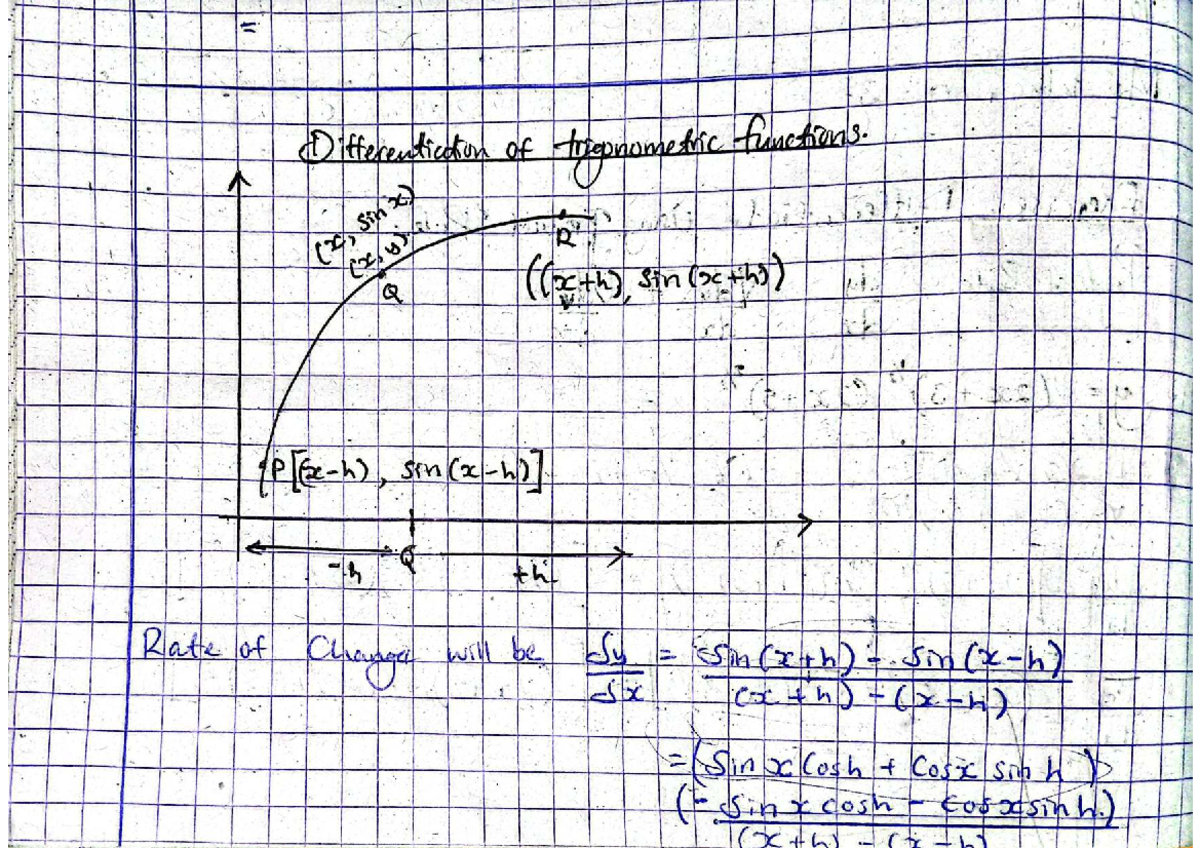 =
Differentiation of trigonometric functions.
(x, sin x)
(x, y)
Q
R
((x+h), sin (x+h))
P[(x-h), sin (x-h)]
-h Q +h
Rate of Change will be δy/δx = sin (x+h) - sin (x-h) / (x+h) - (x-h)
= (sin x cosh + cosx sin h)
(- sin x cosh - cosx sin h)
(x+h) - (x-h)